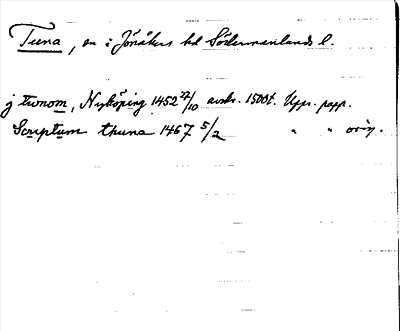 Tuna, en i Jönåkers hd Södermanlands l.
j twnom, Nyköping 1452 27/10 avskr. 1500t. Upps. papp.
Scriptum thuna 1467 5/2 " " orig.